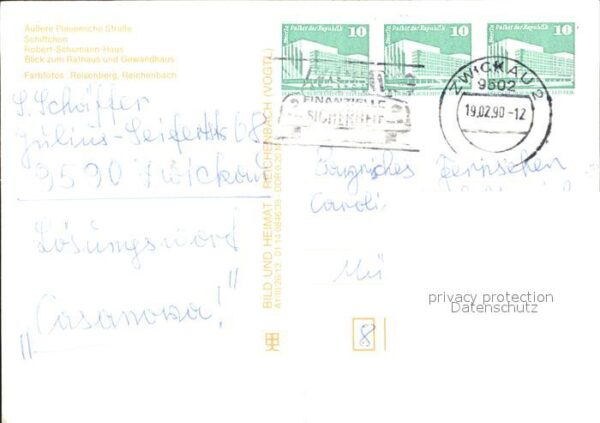 Äußere Plauensche Straße
Schiffchen
Robert-Schumann-Haus
Blick zum Rathaus und Gewandhaus
Farbfotos: Reisenberg, Reichenbach
S. Schäffer
Julius-Seifert-Str. 68
9590 Zwickau
Lösungswort
„Casanova!"
BILD UND HEIMAT REICHENBACH (VOGTL)
Berlin, Palast der Republik 10
Berlin, Palast der Republik 10
Berlin, Palast der Republik 10
FINANZIELLE
SICHERHEIT
ZWICKAU 2
9502
19.02.90-12
Bayrisches Fernsehen
Caroli
Mü
8
privacy protection
Datenschutz